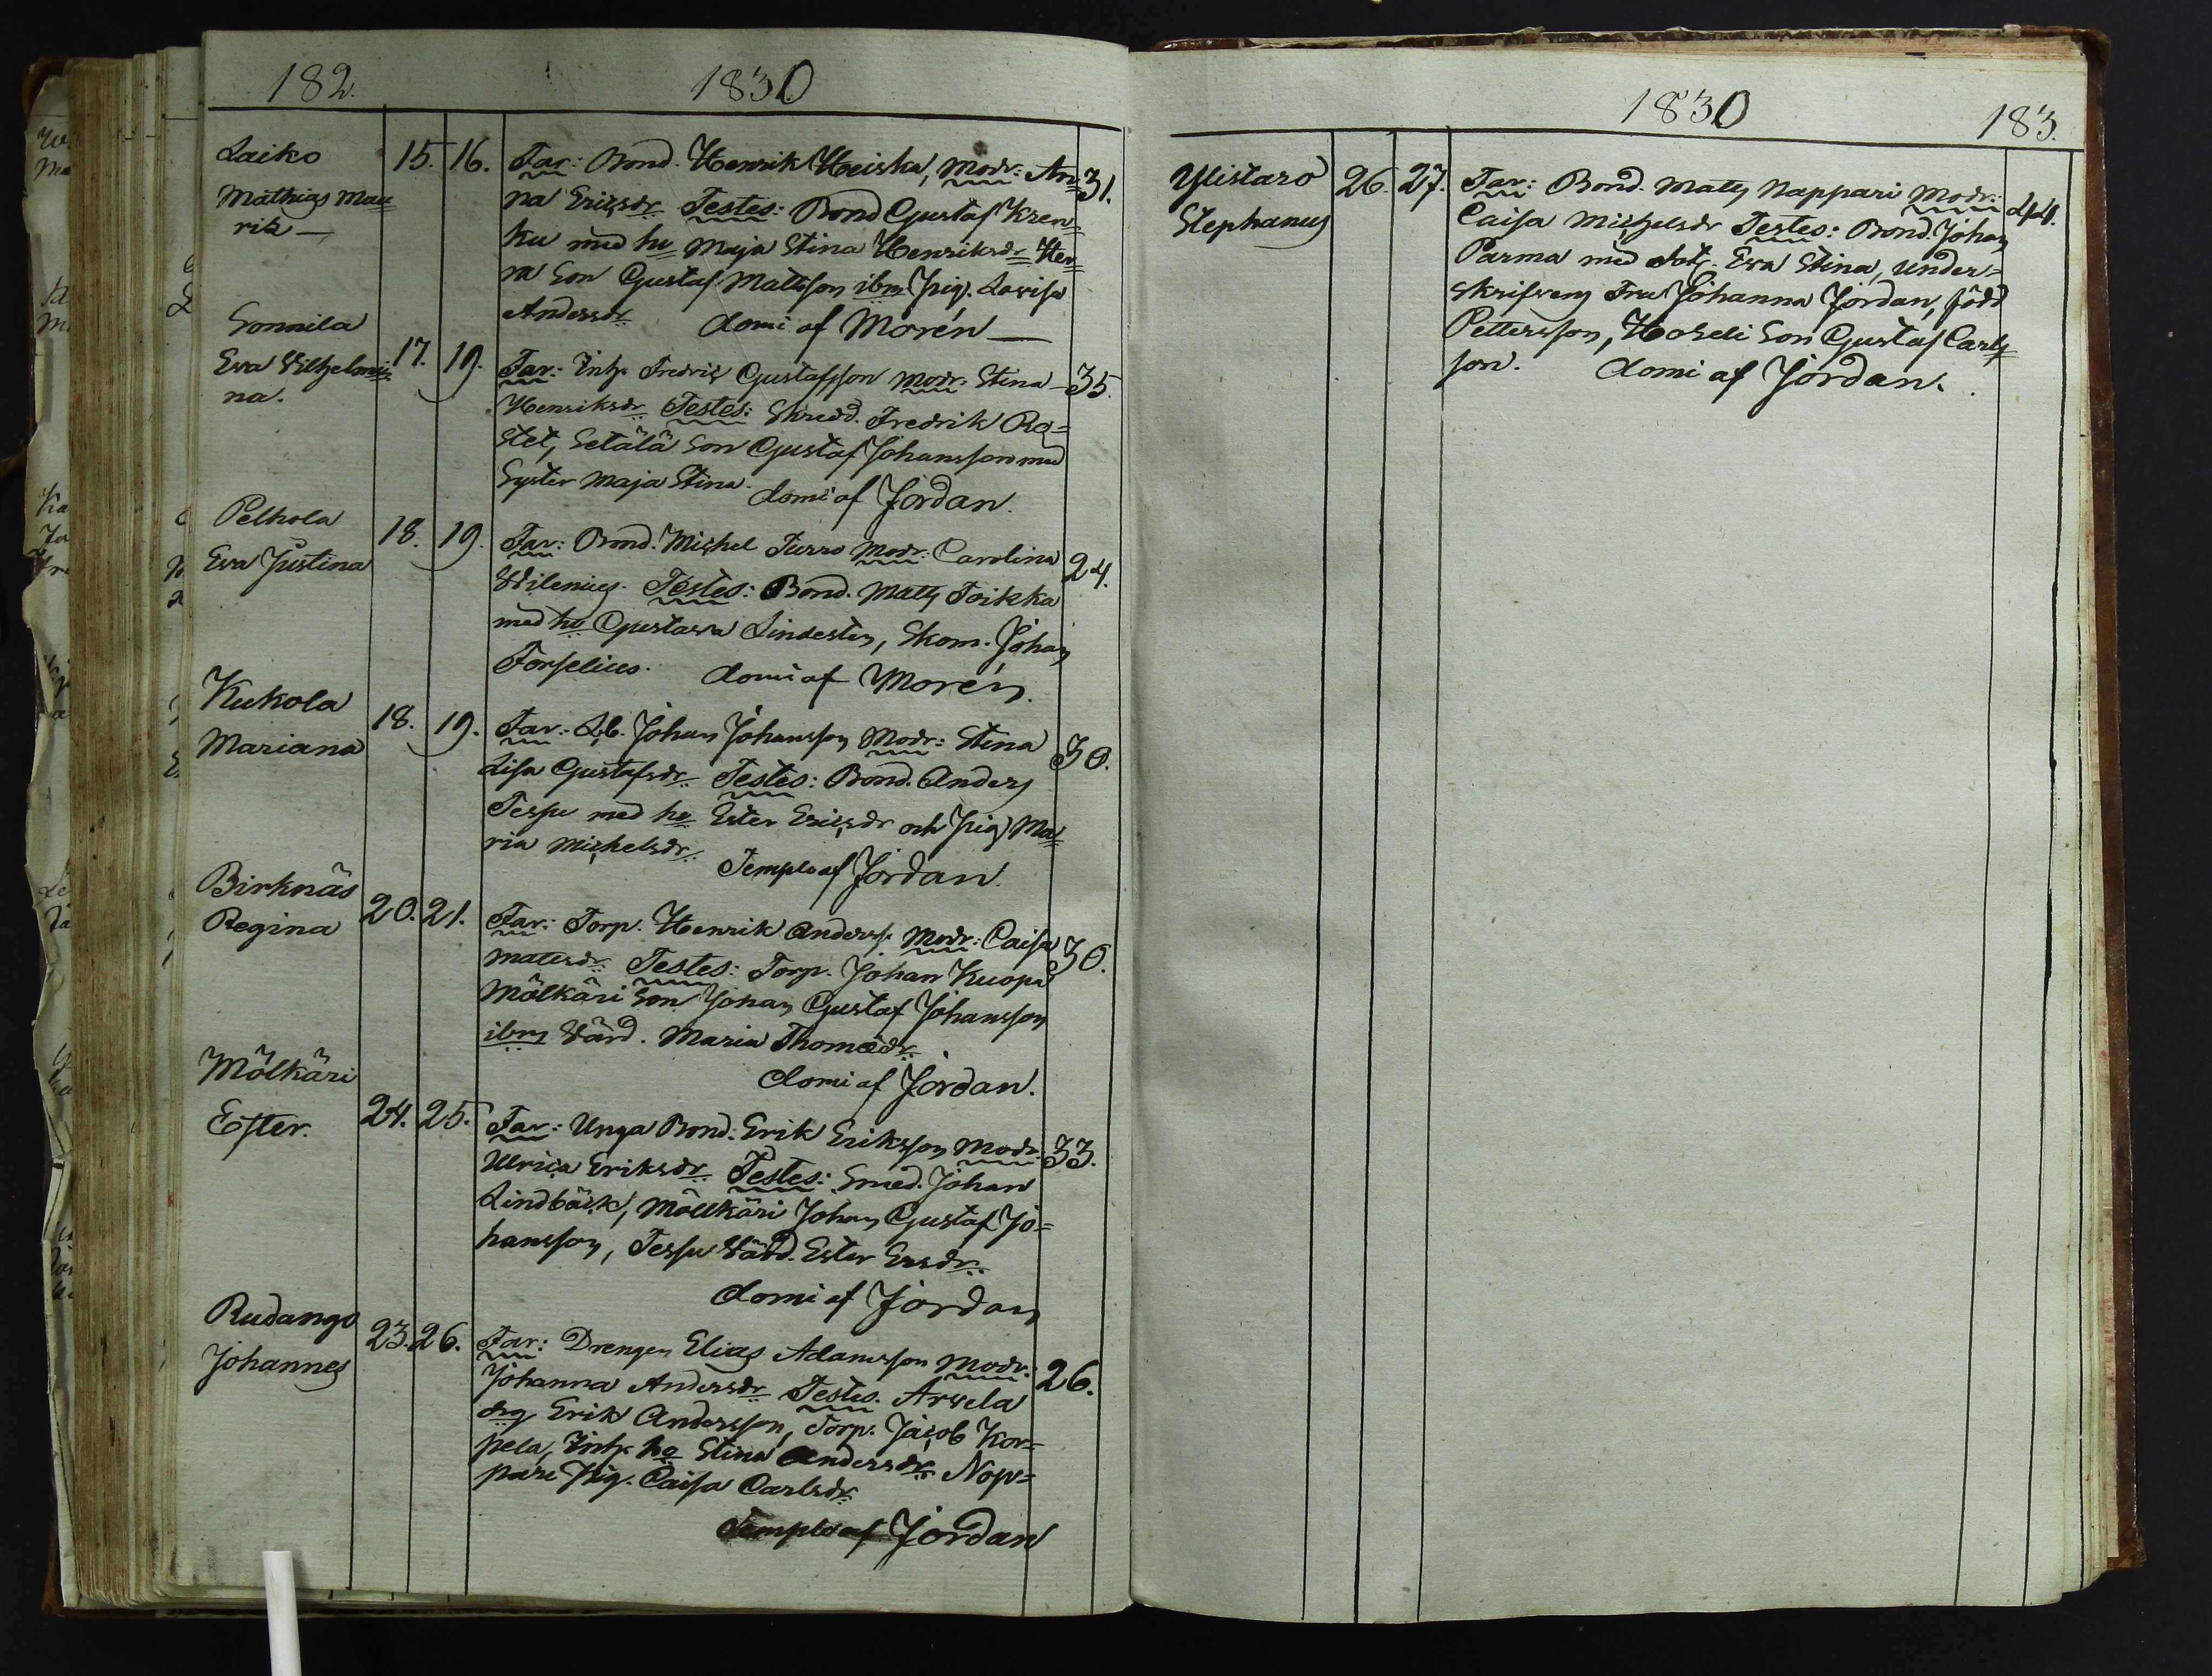 182. 1830
Laiko 15. 16. Far: Bond. Henrik Heiska, Modr: An= 31.
Mathias Mau= na Ericsdr Testes: Bond Gustaf Kren=
rits — ku med hu Maja Stina Henriksdr
ra Son Gustaf Mattsson ibm Pig. Lovisa
Andersdr domi af Morén —
Sonnila
Eva Wilhelmi= 17. 19. Far: Inh. Fredric Gustafsson Modr: Stina 35.
na. Henriksdr Testes: Skredd. Fredrik Ro=
stet, Setälä Son Gustaf Johansson med
Syster Maja Stina. domi af Jordan.
Pelkola 18. 19. Far: Bond. Michel Turro Modr: Carolina 24.
Eva Justina Wilenius. Testes: Bond. Matts Toikka
med hu Gustava Lindesten, Skom. Johan
Forselius. domi af Morén.
Kukola 18. 19. Far: Johan Johansson Modr: Stina 30.
Mariana Lisa Gustafsdr Testes: Bond. Anders
Tessu med hu Ester Ericsdr och Pig Ma=
ria Michelsdr Templo af Jordan.
Birknäs 20. 21. Far: Torp. Henrik Anderss. Modr: Caisa 30.
Regina Matesdr Testes: Torp. Johan Kuopa
Mölkäri Son Johan Gustaf Johansson
ibm Värd. Maria Thomædr
domi af Jordan.
Mölkäri
Ester. 24. 25. Far: Unga Bond. Erik Eriksson Modr: 33.
Ulrica Eriksdr Testes: Smed. Johan
Lindbäck, Mölkäri Johan Gustaf Jo=
hansson, Tessu Värd. Ester Ersdr
domi af Jordan
Rudango 23. 26. Far: Drengen Elias Adamsson Modr: 26.
Johannes Johanna Andersdr Testes. Arvela
drg Erik Andersson, Torp. Jacob Kor=
pela, Inh. hu Stina Andersdr Nop=
pari Pig. Caisa Carlsdr
Templo af Jordan
1830 183.
Ylistaro 26. 27. Far: Bond. Matts Nappari Modr: 44.
Stephanus Caisa Michelsdr Testes: Bond. Johan
Parma med Eva Stina, under=
skrifvens Fru Johanna Jordan, född
Pettersson, Hoheli Son Gustaf Carls=
son. domi af Jordan.